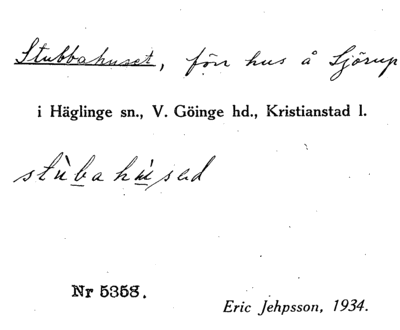 Stubbahuset, förr hus å Sjörup
i Häglinge sn., V. Göinge hd., Kristianstad l.
stùbahùsəd
Nr 5358.
Eric Jehpsson, 1934.